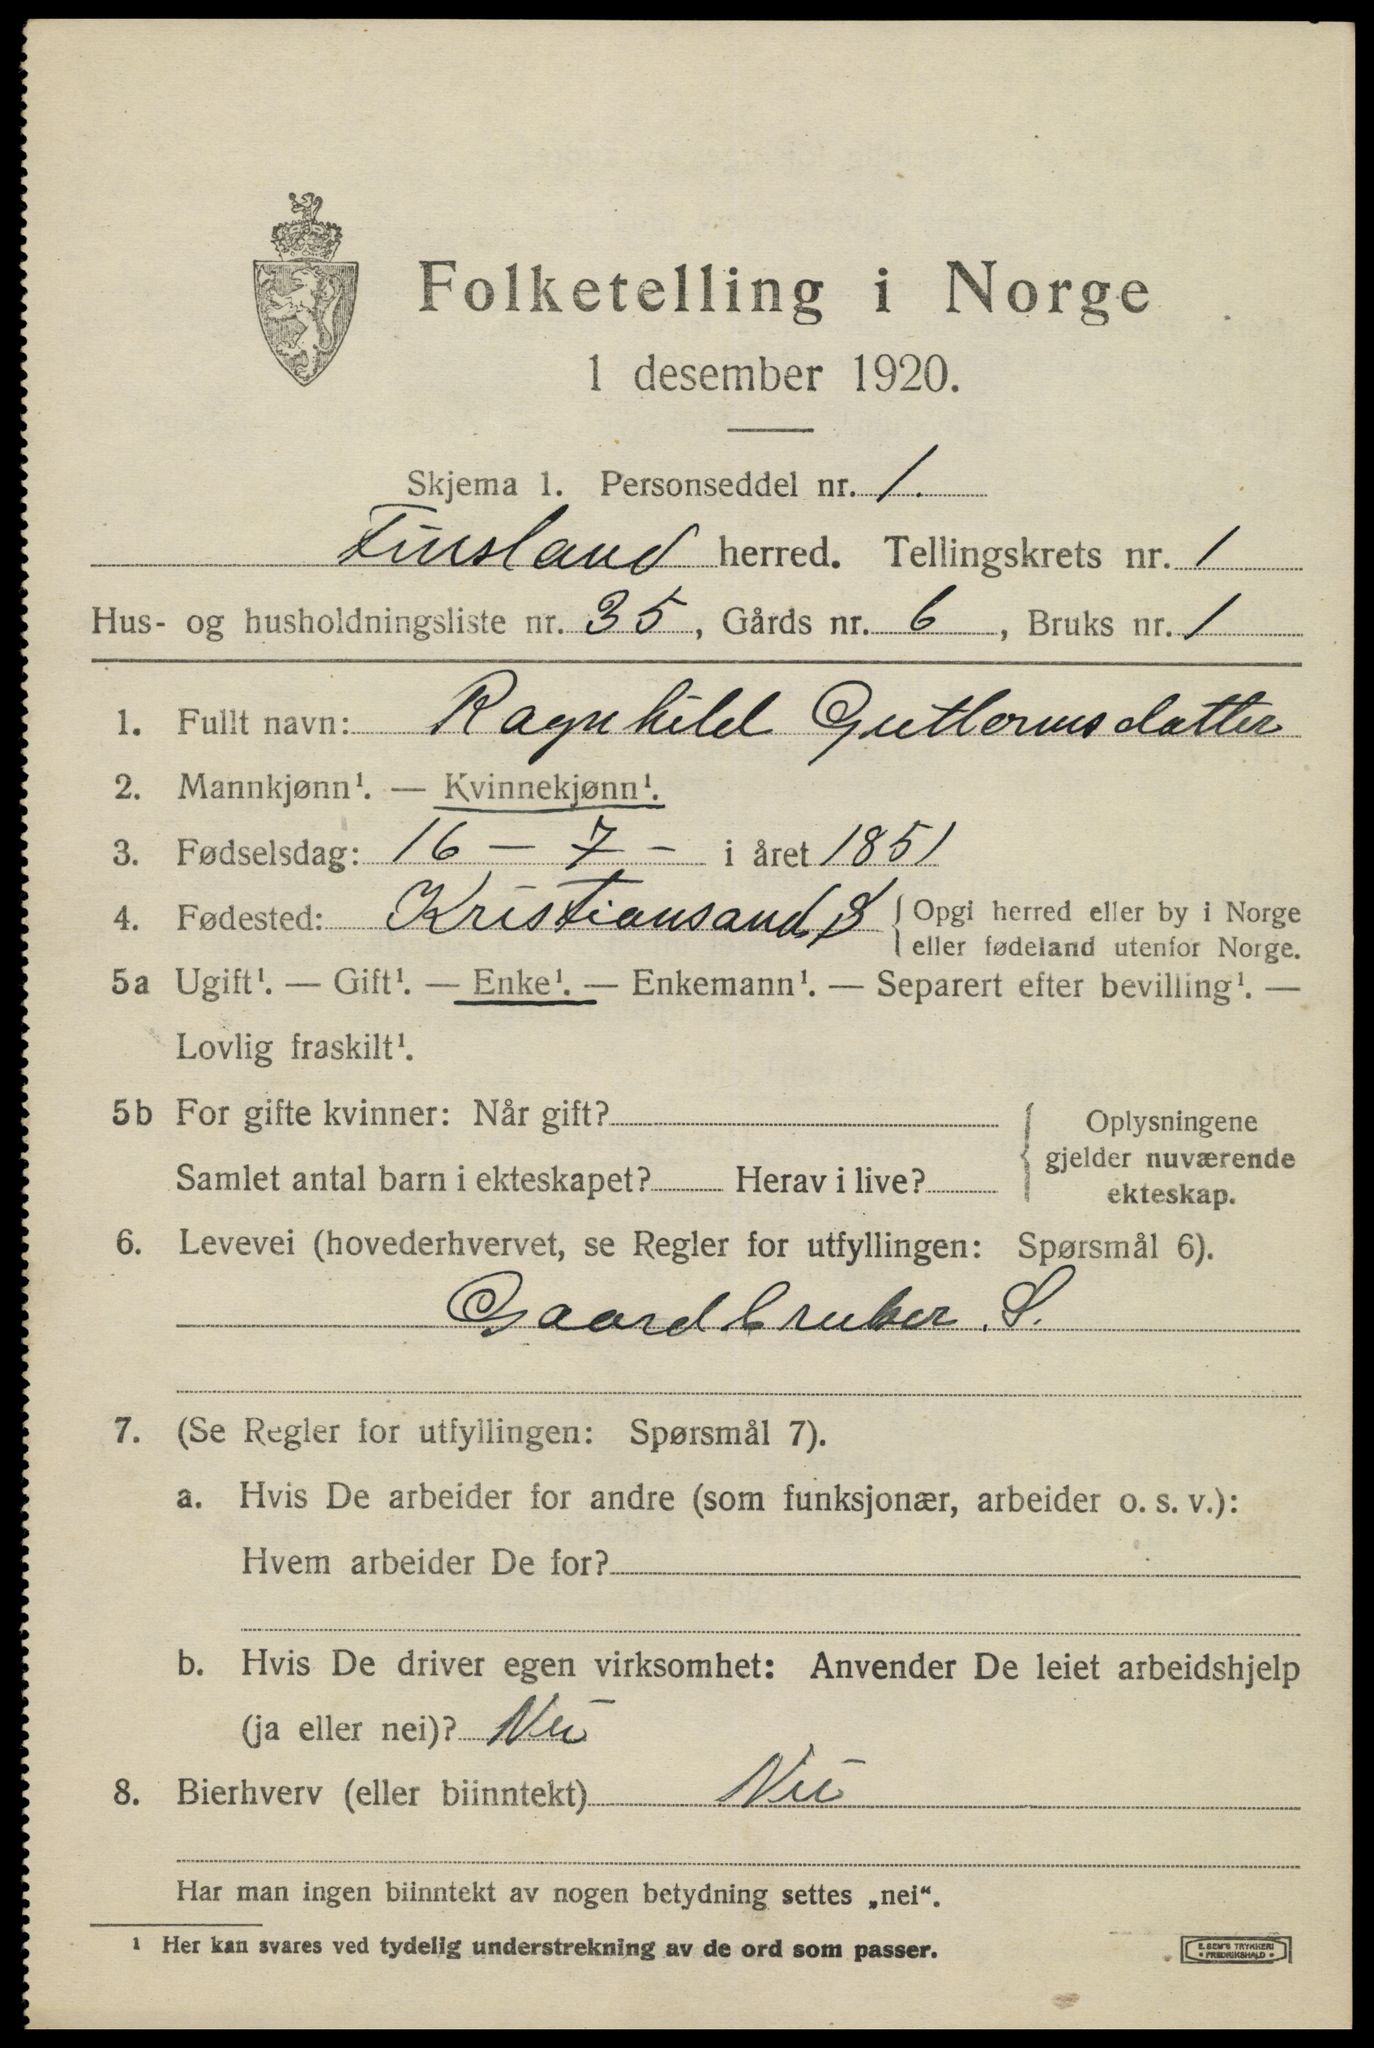 Folketelling i Norge
1 desember 1920.
Skjema 1. Personseddel nr. 1.
Finsland herred. Tellingskrets nr. 1
Hus- og husholdningsliste nr. 35, Gårds nr. 6, Bruks nr. 1
1. Fullt navn: Ragnhild Guttormsdatter
2. Mannkjønn¹. — Kvinnekjønn¹.
3. Fødselsdag: 16 - 7 - i året 1851
4. Fødested: Kristiansand S { Opgi herred eller by i Norge
eller fødeland utenfor Norge.
5a Ugift¹. — Gift¹. — Enke¹. — Enkemann¹. — Separert efter bevilling¹. —
Lovlig fraskilt¹.
5b For gifte kvinner: Når gift?
Samlet antal barn i ekteskapet? Herav i live?
{ Oplysningene
gjelder nuværende
ekteskap.
6. Levevei (hovederhvervet, se Regler for utfyllingen: Spørsmål 6).
Gaardbruker. S.
7. (Se Regler for utfyllingen: Spørsmål 7).
a. Hvis De arbeider for andre (som funksjonær, arbeider o. s. v.):
Hvem arbeider De for?
b. Hvis De driver egen virksomhet: Anvender De leiet arbeidshjelp
(ja eller nei)? Nei
8. Bierhverv (eller biinntekt) Nei
Har man ingen biinntekt av nogen betydning settes „nei“.
¹ Her kan svares ved tydelig understrekning av de ord som passer.
E. SEM'S TRYKKERI
• FREDRIKSHALD •